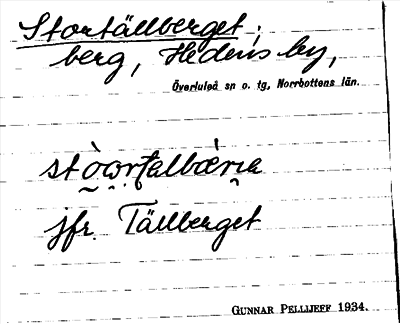 Stortällberget;
berg, Hedens by,
Överluleå sn o. tg, Norrbottens län.
jfr. Tällberget
GUNNAR PELLIJEFF 1934.